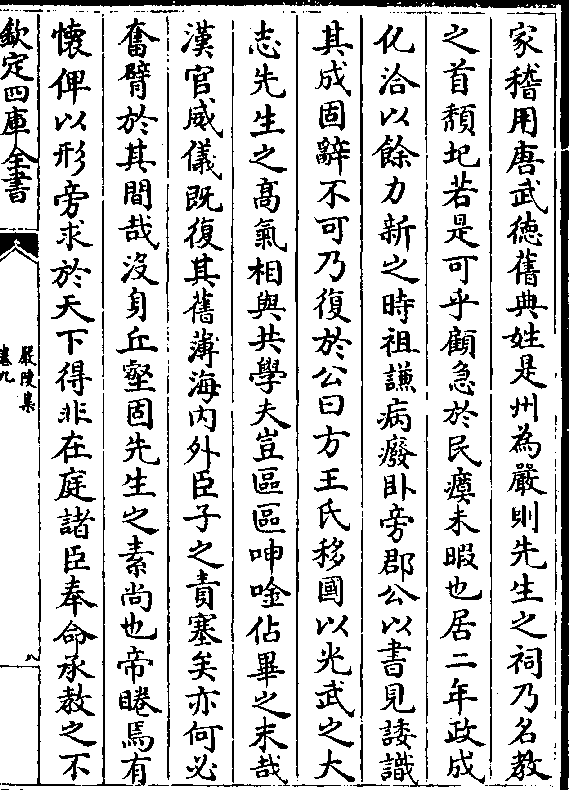 家稽用唐武徳舊典姓是州為嚴則先生之祠乃名教
之首頽圮若是可乎顧急於民瘼未暇也居二年政成
化洽以餘力新之時祖謙病廢卧旁郡公以書見諉識
其成固辭不可乃復於公曰方王氏移國以光武之大
志先生之髙氣相與共學夫豈區區呻唫佔畢之末哉
漢官威儀既復其舊薄海内外臣子之責塞矣亦何必
奮臂於其間哉沒身丘壑固先生之素尚也帝睠焉有
懐俾以形旁求於天下得非在庭諸臣奉命承教之不
欽定四庫全書
嚴陵集
卷九
八